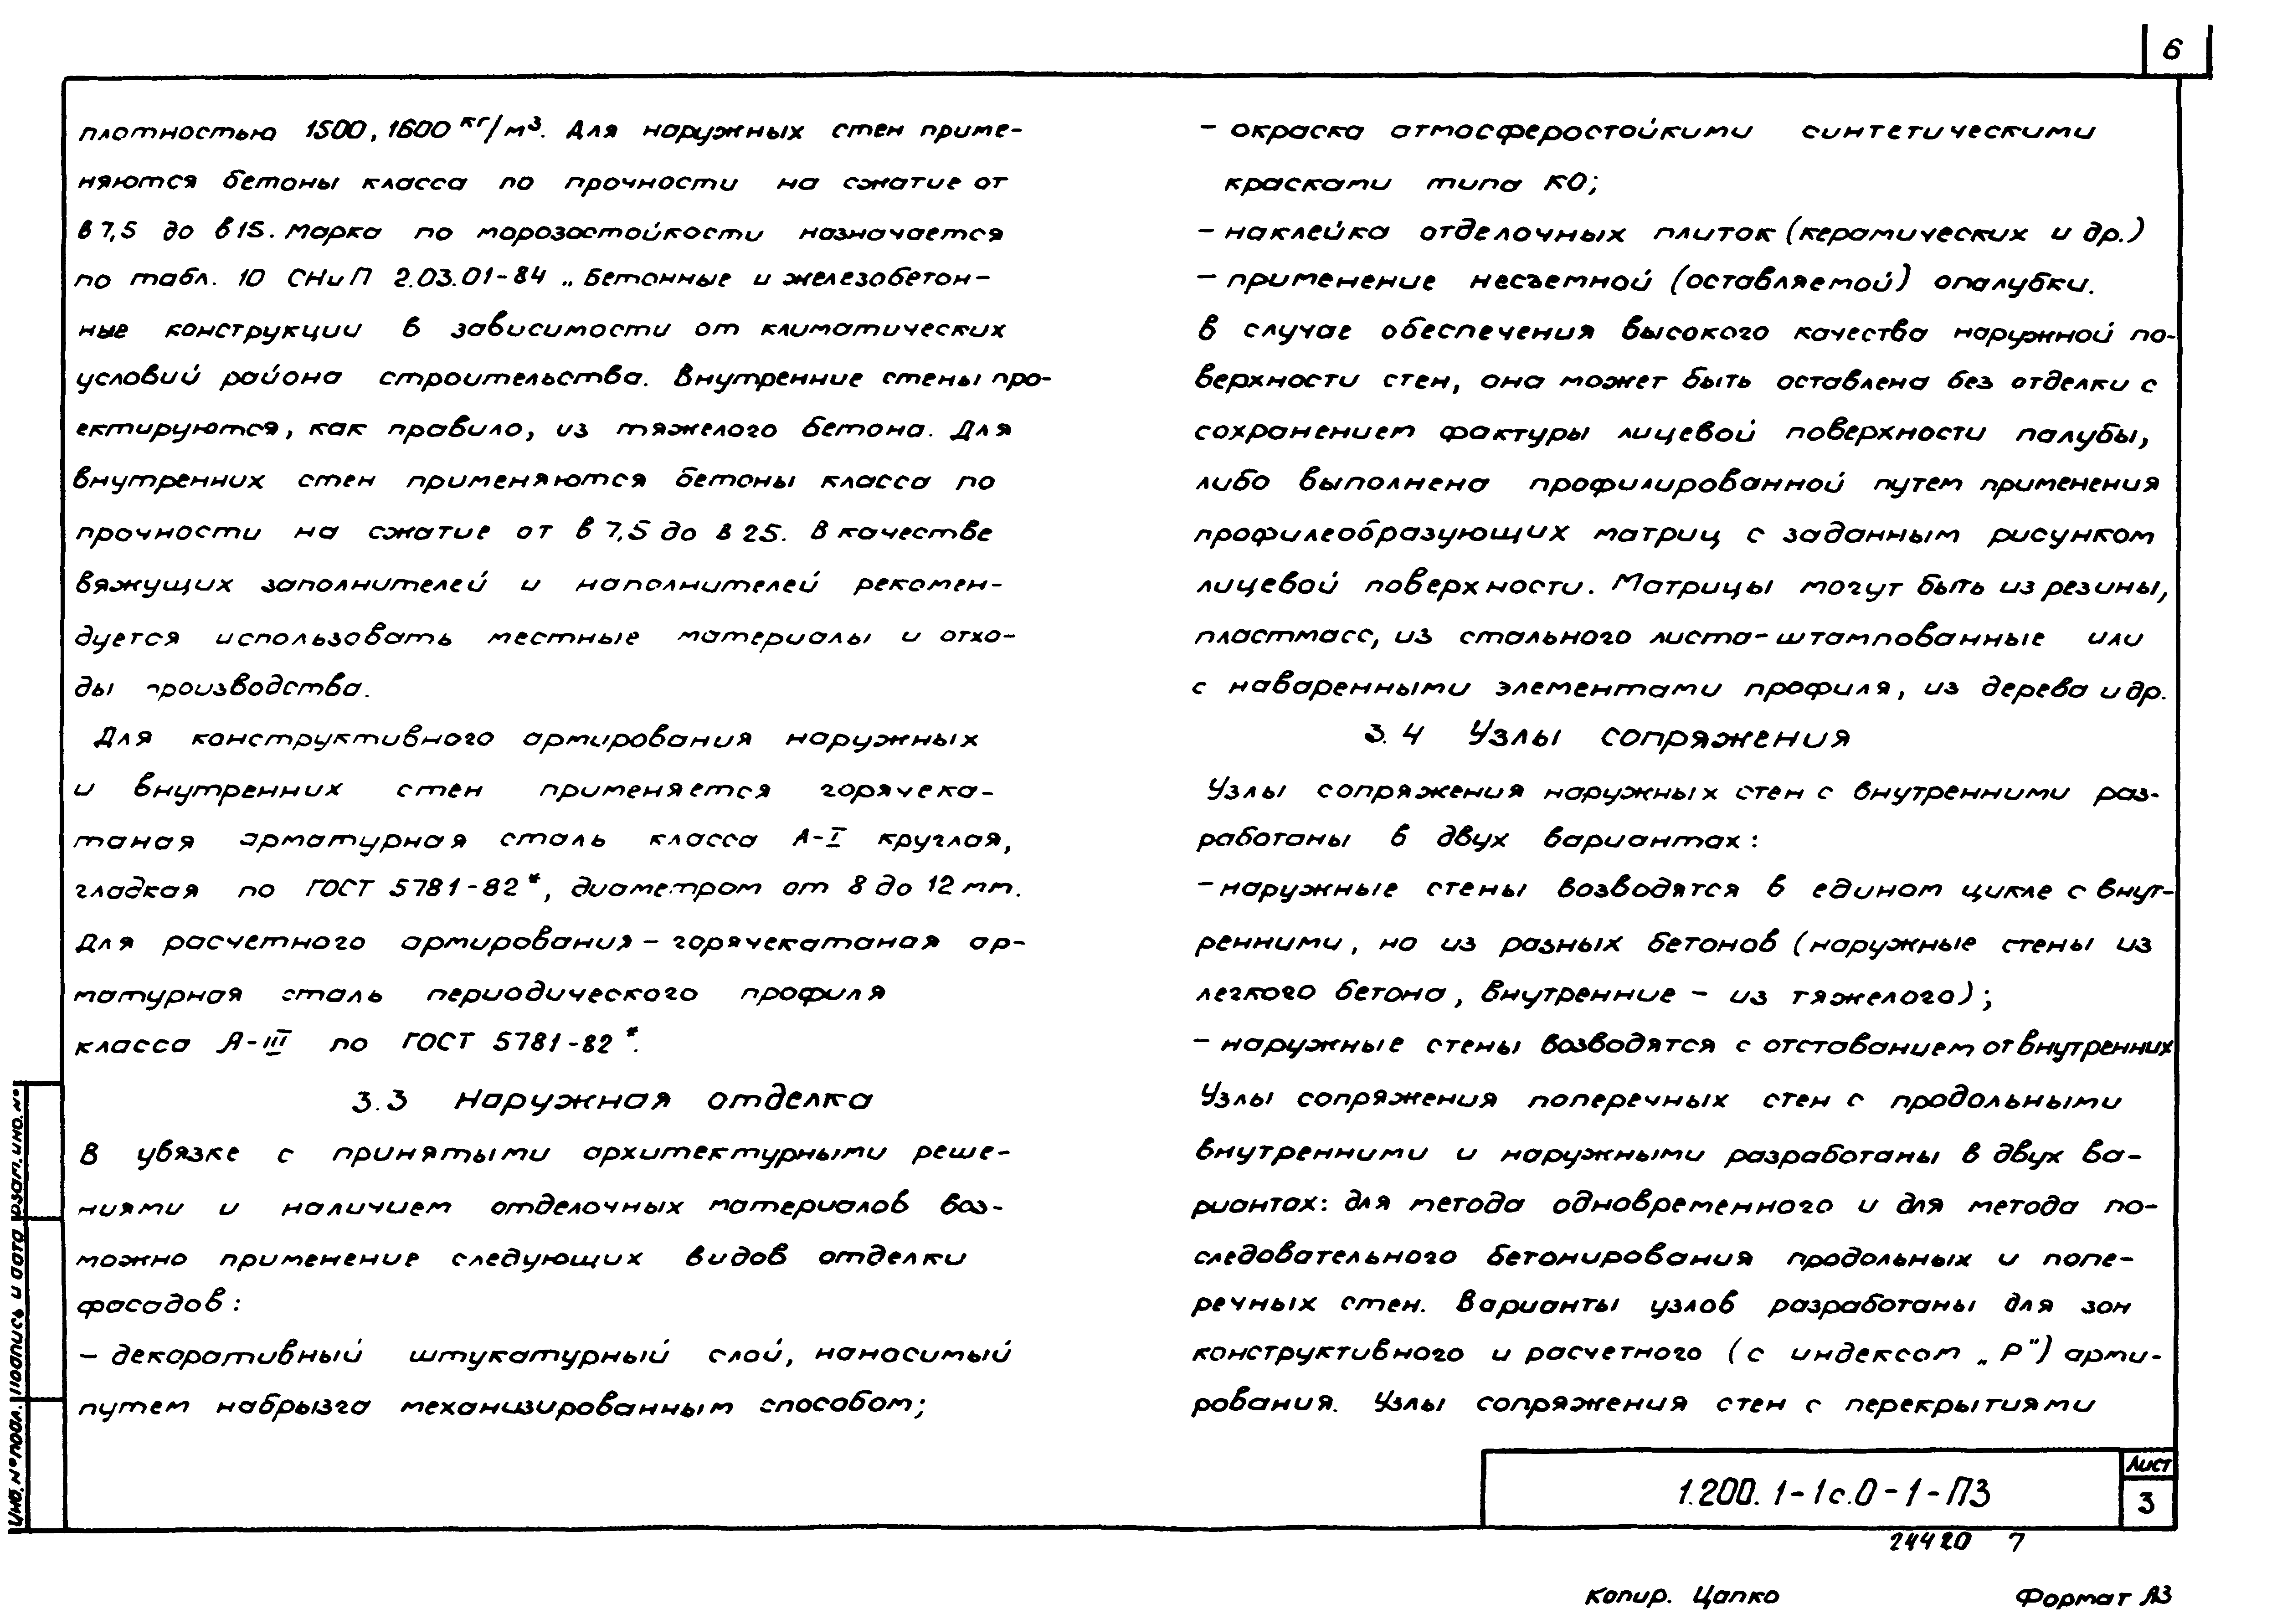 6
плотностью 1500, 1600 кг/м³. Для наружных стен приме-
няются бетоны класса по прочности на сжатие от
В 7,5 до В 15. Марка по морозостойкости назначается
по табл. 10 СНиП 2.03.01-84 „Бетонные и железобетон-
ные конструкции в зависимости от климатических
условий района строительства. Внутренние стены про-
ектируются, как правило, из тяжелого бетона. Для
внутренних стен применяются бетоны класса по
прочности на сжатие от В 7,5 до В 25. В качестве
вяжущих заполнителей и наполнителей рекомен-
дуется использовать местные материалы и отхо-
ды производства.
Для конструктивного армирования наружных
и внутренних стен применяется горячека-
таная арматурная сталь класса А-I круглая,
гладкая по ГОСТ 5781-82*, диаметром от 8 до 12 мм.
Для расчетного армирования - горячекатаная ар-
матурная сталь периодического профиля
класса А-III по ГОСТ 5781-82*.
3.3 Наружная отделка
В увязке с принятыми архитектурными реше-
ниями и наличием отделочных материалов воз-
можно применение следующих видов отделки
фасадов:
- декоративный штукатурный слой, наносимый
путем набрызга механизированным способом;
- окраска атмосферостойкими синтетическими
красками типа КО;
- наклейка отделочных плиток (керамических и др.)
- применение несъемной (оставляемой) опалубки.
В случае обеспечения высокого качества наружной по-
верхности стен, она может быть оставлена без отделки с
сохранением фактуры лицевой поверхности палубы,
либо выполнена профилированной путем применения
профилеобразующих матриц с заданным рисунком
лицевой поверхности. Матрицы могут быть из резины,
пластмасс, из стального листа-штампованные или
с наваренными элементами профиля, из дерева и др.
3.4 Узлы сопряжения
Узлы сопряжения наружных стен с внутренними раз-
работаны в двух вариантах:
- наружные стены возводятся в едином цикле с внут-
ренними, но из разных бетонов (наружные стены из
легкого бетона, внутренние - из тяжелого);
- наружные стены возводятся с отставанием от внутренних
Узлы сопряжения поперечных стен с продольными
внутренними и наружными разработаны в двух ва-
риантах: для метода одновременного и для метода по-
следовательного бетонирования продольных и попе-
речных стен. Варианты узлов разработаны для зон
конструктивного и расчетного (с индексом „Р") арми-
рования. Узлы сопряжения стен с перекрытиями
Инв. № подл. Подпись и дата Взам. инв. №
1.200.1-1с.0-1-ПЗ
Лист
3
24420 7
Копир. Цапко Формат А3